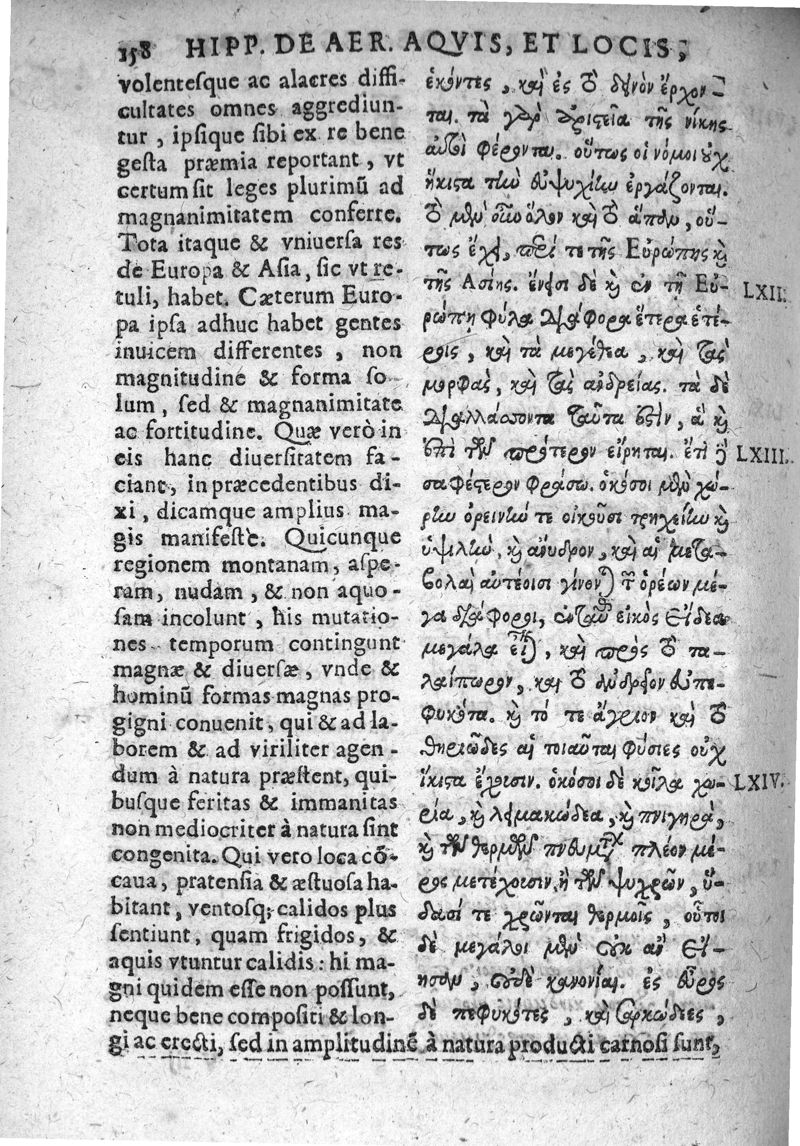 158 HIPP. DE AER. AQVIS, ET LOCIS;
volentesque ac alacres diffi-
cultates omnes aggrediun-
tur, ipsique sibi ex re bene
gesta præmia reportant, vt
certum sit leges plurimũ ad
magnanimitatem conferre.
Tota itaque & vniuersa res
de Europa & Asia, sic vt re-
tuli, habet. Cæterum Euro-
pa ipsa adhuc habet gentes
inuicem differentes, non
magnitudine & forma so-
lum, sed & magnanimitate
ac fortitudine. Quæ verò in
eis hanc diuersitatem fa-
ciant, in præcedentibus di-
xi, dicamque amplius ma-
gis manifeste. Quicunque
regionem montanam, aspe-
ram, nudam, & non aquo-
sam incolunt, his mutatio-
nes temporum contingunt
magnæ & diuersæ, vnde &
hominũ formas magnas pro-
gigni conuenit, qui & ad la-
borem & ad viriliter agen-
dum à natura præstent, qui-
busque feritas & immanitas
non mediocriter à natura sint
congenita. Qui vero loca cõ-
caua, pratensia & æstuosa ha-
bitant, ventosq; calidos plus
sentiunt, quam frigidos, &
aquis vtuntur calidis: hi ma-
gni quidem esse non possunt,
neque bene compositi & lon-
gi ac erecti, sed in amplitudinẽ à natura producti carnosi sunt,
ἑκόντες, καὶ ἐς τὸ δεινὸν ἔρχον-
ται. τὰ γὰρ ἀριστεῖα τῆς νίκης
αὐτοὶ φέρονται. οὕτως οἱ νόμοι οὐχ
ἥκιστα τὴν εὐψυχίην ἐργάζονται.
τὸ μὲν οὖν ὅλον καὶ τὸ ἅπαν, οὕ-
τως ἔχει, περί τε τῆς Εὐρώπης καὶ
τῆς Ἀσίης. ἔνεισι δὲ καὶ ἐν τῇ Εὐ- LXII.
ρώπῃ φῦλα διάφορα ἕτερα ἑτέ-
ροις, καὶ τὰ μεγέθεα, καὶ τὰς
μορφὰς, καὶ τὰς ἀνδρείας. τὰ δὲ
διαλλάσσοντα ταῦτα ἐστὶν, ἃ καὶ
ἐπὶ τῶν πρότερον εἴρηται. ἔτι δὲ LXIII.
σαφέστερον φράσω. ὁκόσοι μὲν χώ-
ρην ὀρεινήν τε οἰκοῦσι τρηχείην καὶ
ὑψηλὴν, καὶ ἄνυδρον, καὶ αἱ μετα-
βολαὶ αὐτέοισι γίνονται τῶν ὡρέων μέ-
γα διάφοροι, ἐνταῦθα εἰκὸς εἴδεα
μεγάλα εἶναι, καὶ πρὸς τὸ τα-
λαίπωρον, καὶ τὸ ἀνδρεῖον εὖ πε-
φυκότα. καὶ τό τε ἄγριον καὶ τὸ
θηριῶδες αἱ τοιαῦται φύσιες οὐχ
ἥκιστα ἔχουσιν. ὁκόσοι δὲ κοῖλα χω- LXIV.
ρία, καὶ λειμακώδεα, καὶ πνιγηρὰ,
καὶ τῶν θερμῶν πνευμάτων πλέον μέ-
ρος μετέχουσιν, ἢ τῶν ψυχρῶν, ὕ-
δασί τε χρῶνται θερμοῖς, οὗτοι
δὲ μεγάλοι μὲν οὐκ ἂν εἴ-
ησαν, οὐδὲ κανονίαι. ἐς εὖρος
δὲ πεφυκότες, καὶ σαρκώδεες,